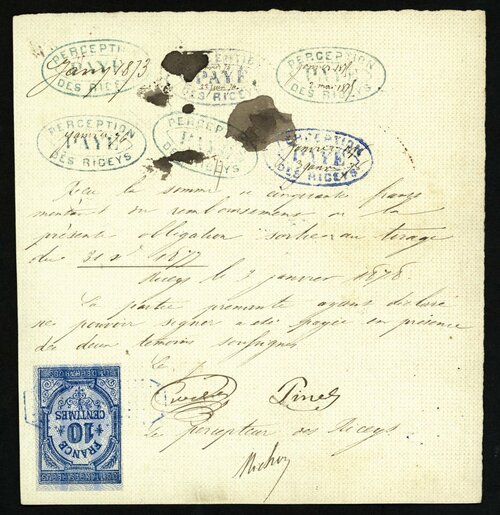 PERCEPTION
PAYÉ
DES RICEYS
PERCEPTION
PAYÉ
DES RICEYS
PERCEPTION
DES RICEYS
Janv 1873
PERCEPTION
PAYÉ
DES RICEYS
PERCEPTION
PAYÉ
DES RICEYS
PERCEPTION
PAYÉ
DES RICEYS
Reçu la somme de cinquante francs
montant du remboursement de la
présente obligation sortie au tirage
du 31 1877
Riceys le 2 janvier 1878
La partie prenante ayant déclaré
ne pouvoir signer a été payée en présence
des deux témoins soussignés
Pinel
Le percepteur des Riceys
10
CENTIMES
FRANCE
10